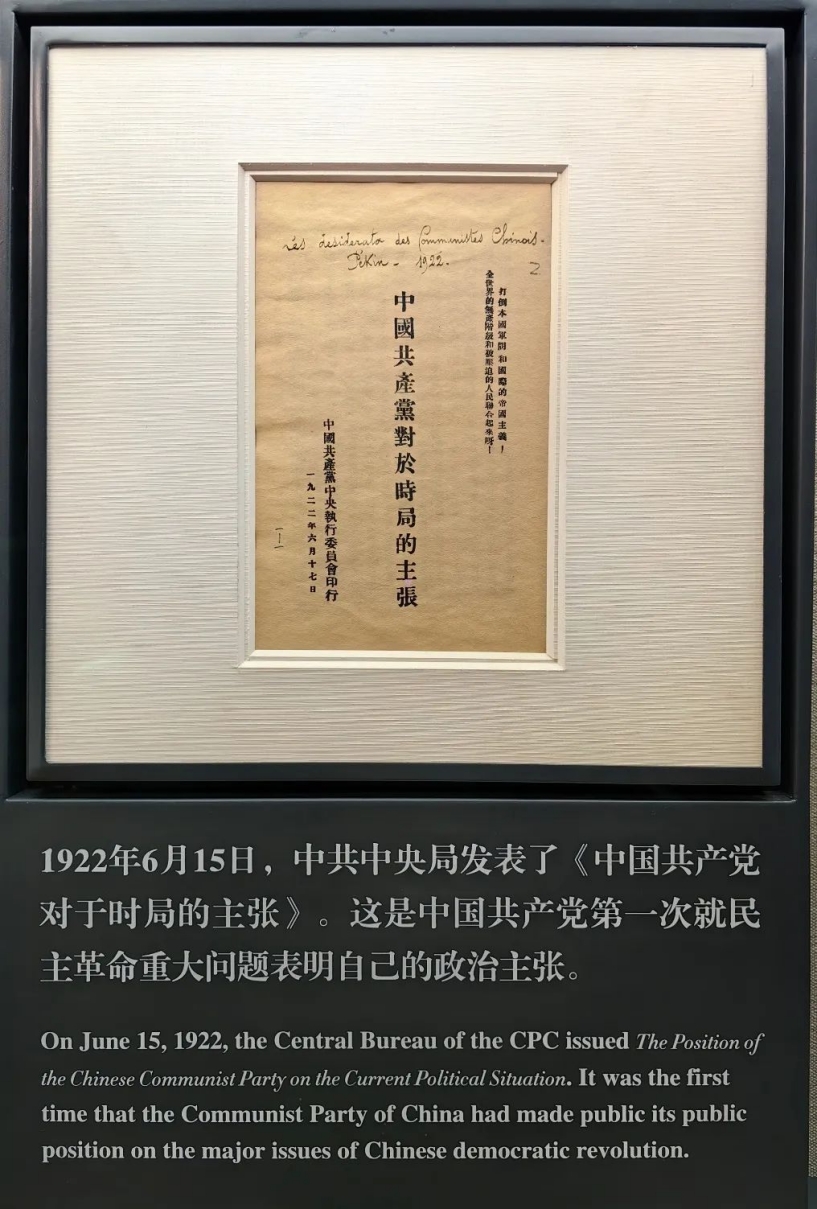 Les desiderata des Communistes Chinois.
Pékin - 1922.
2
打倒本國軍閥和國際的帝國主義！
全世界的無產階級和被壓迫的人民聯合起來呀！
中國共產黨對於時局的主張
中國共產黨中央執行委員會印行
一九二二年六月十七日
（一）
1922年6月15日，中共中央局发表了《中国共产党
对于时局的主张》。这是中国共产党第一次就民
主革命重大问题表明自己的政治主张。
On June 15, 1922, the Central Bureau of the CPC issued The Position of
the Chinese Communist Party on the Current Political Situation. It was the first
time that the Communist Party of China had made public its public
position on the major issues of Chinese democratic revolution.